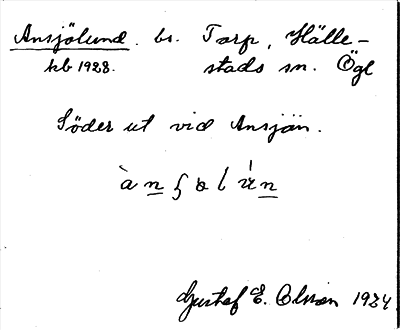 Ansjölund. bs. Torp, Hälle-
kb 1928. stads sn. Ögl
Söder ut vid Ansjön.
Gustaf E. Olsson 1934